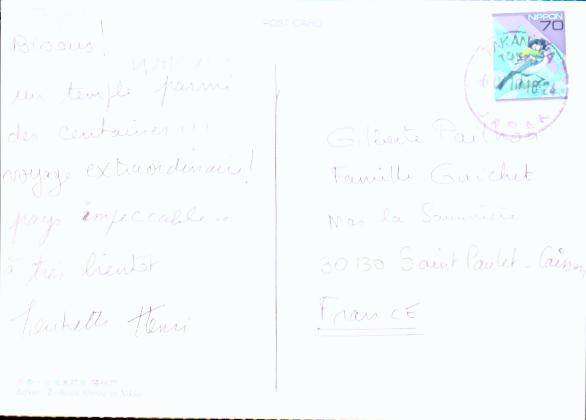 POST CARD
NIPPON
70
Bisous!
un temple parmi
des centaines!!!
voyage extraordinaire!
pays impeccable..
à très bientôt
Henri
Gilberte
Famille Guichet
Mas la
30130 Saint Paulet-Caisson
France